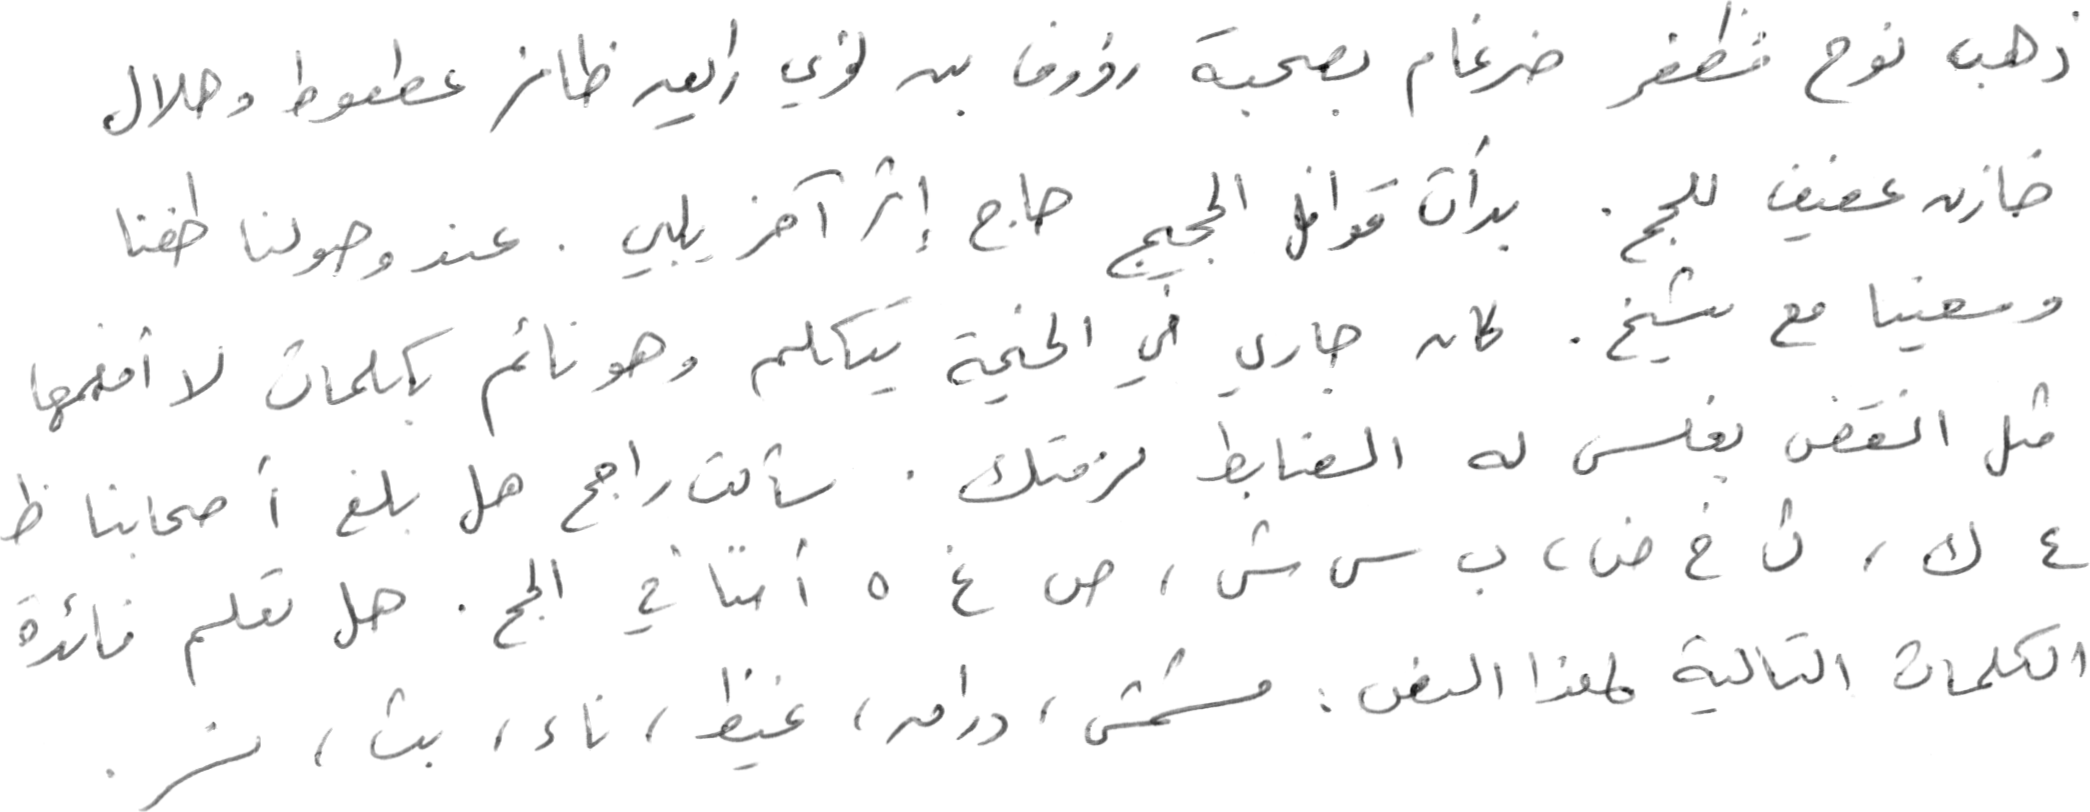 ذهب نوح مظفر ضرغام بصحبة رؤوف بن لؤي رابعه ظافر عطعوط وهلال
خازن عفيف للحج. بدأت قوافل الحجيج حاج إثر آخر يلبي. عند وصولنا طفنا
وسعينا مع شيخ. كان جاري في الخيمة يتكلم وهو نائم بكلمات لا أفهمها
مثل انقض يغلس له الضابط لزمتك. سألت راجح هل بلغ أصحابنا ظ
ع ك، ث خ ض، ب س ش، ص غ ه أمتنا في الحج. هل تعلم فائدة
الكلمات التالية لهذا النص: مشمش، درامه، غيظ، ناء، بث، نز.